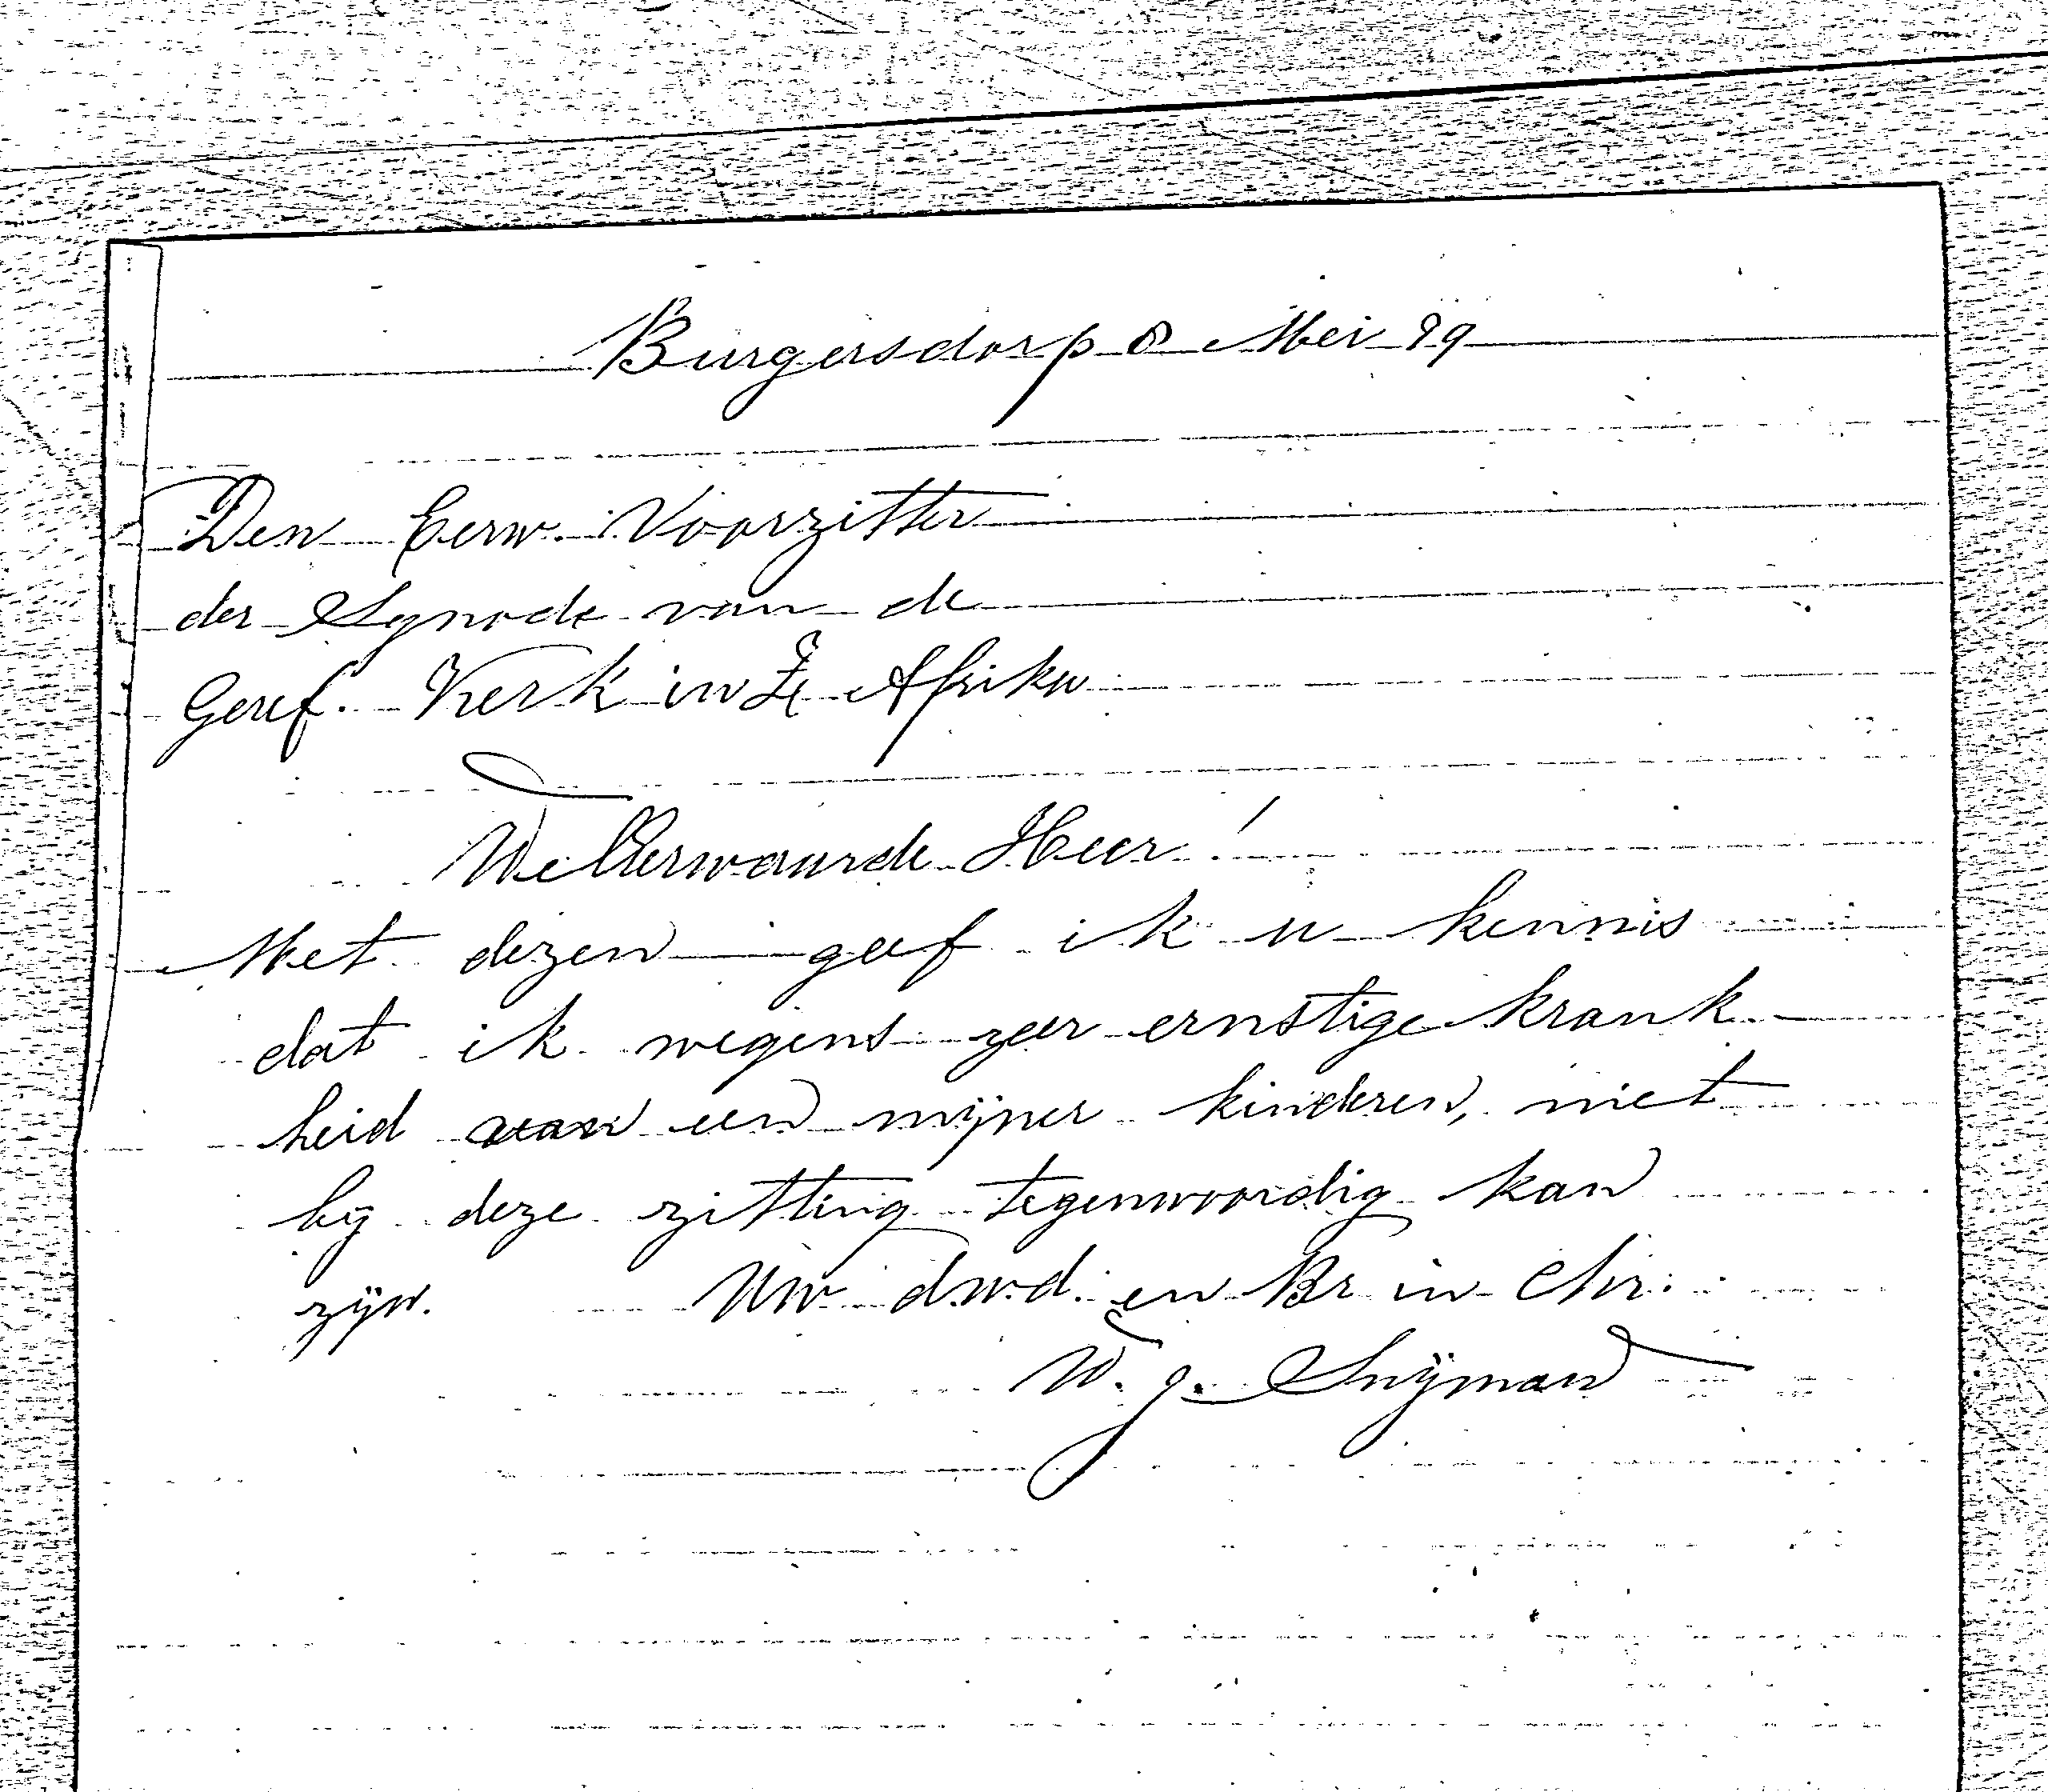 Burgersdorp 8 Mei 99
Den Eerw. Voorzitter
der Synode van de
Geref. Kerk in Z. Afrika
WelEerwaarde Heer!
Met dezen geef ik u kennis
dat ik wegens zeer ernstige krank
heid van een mijner kinderen, niet
bij deze zitting tegenwoordig kan
zijn. Uw dwd. en Br in Chr.
W. J. Snijman